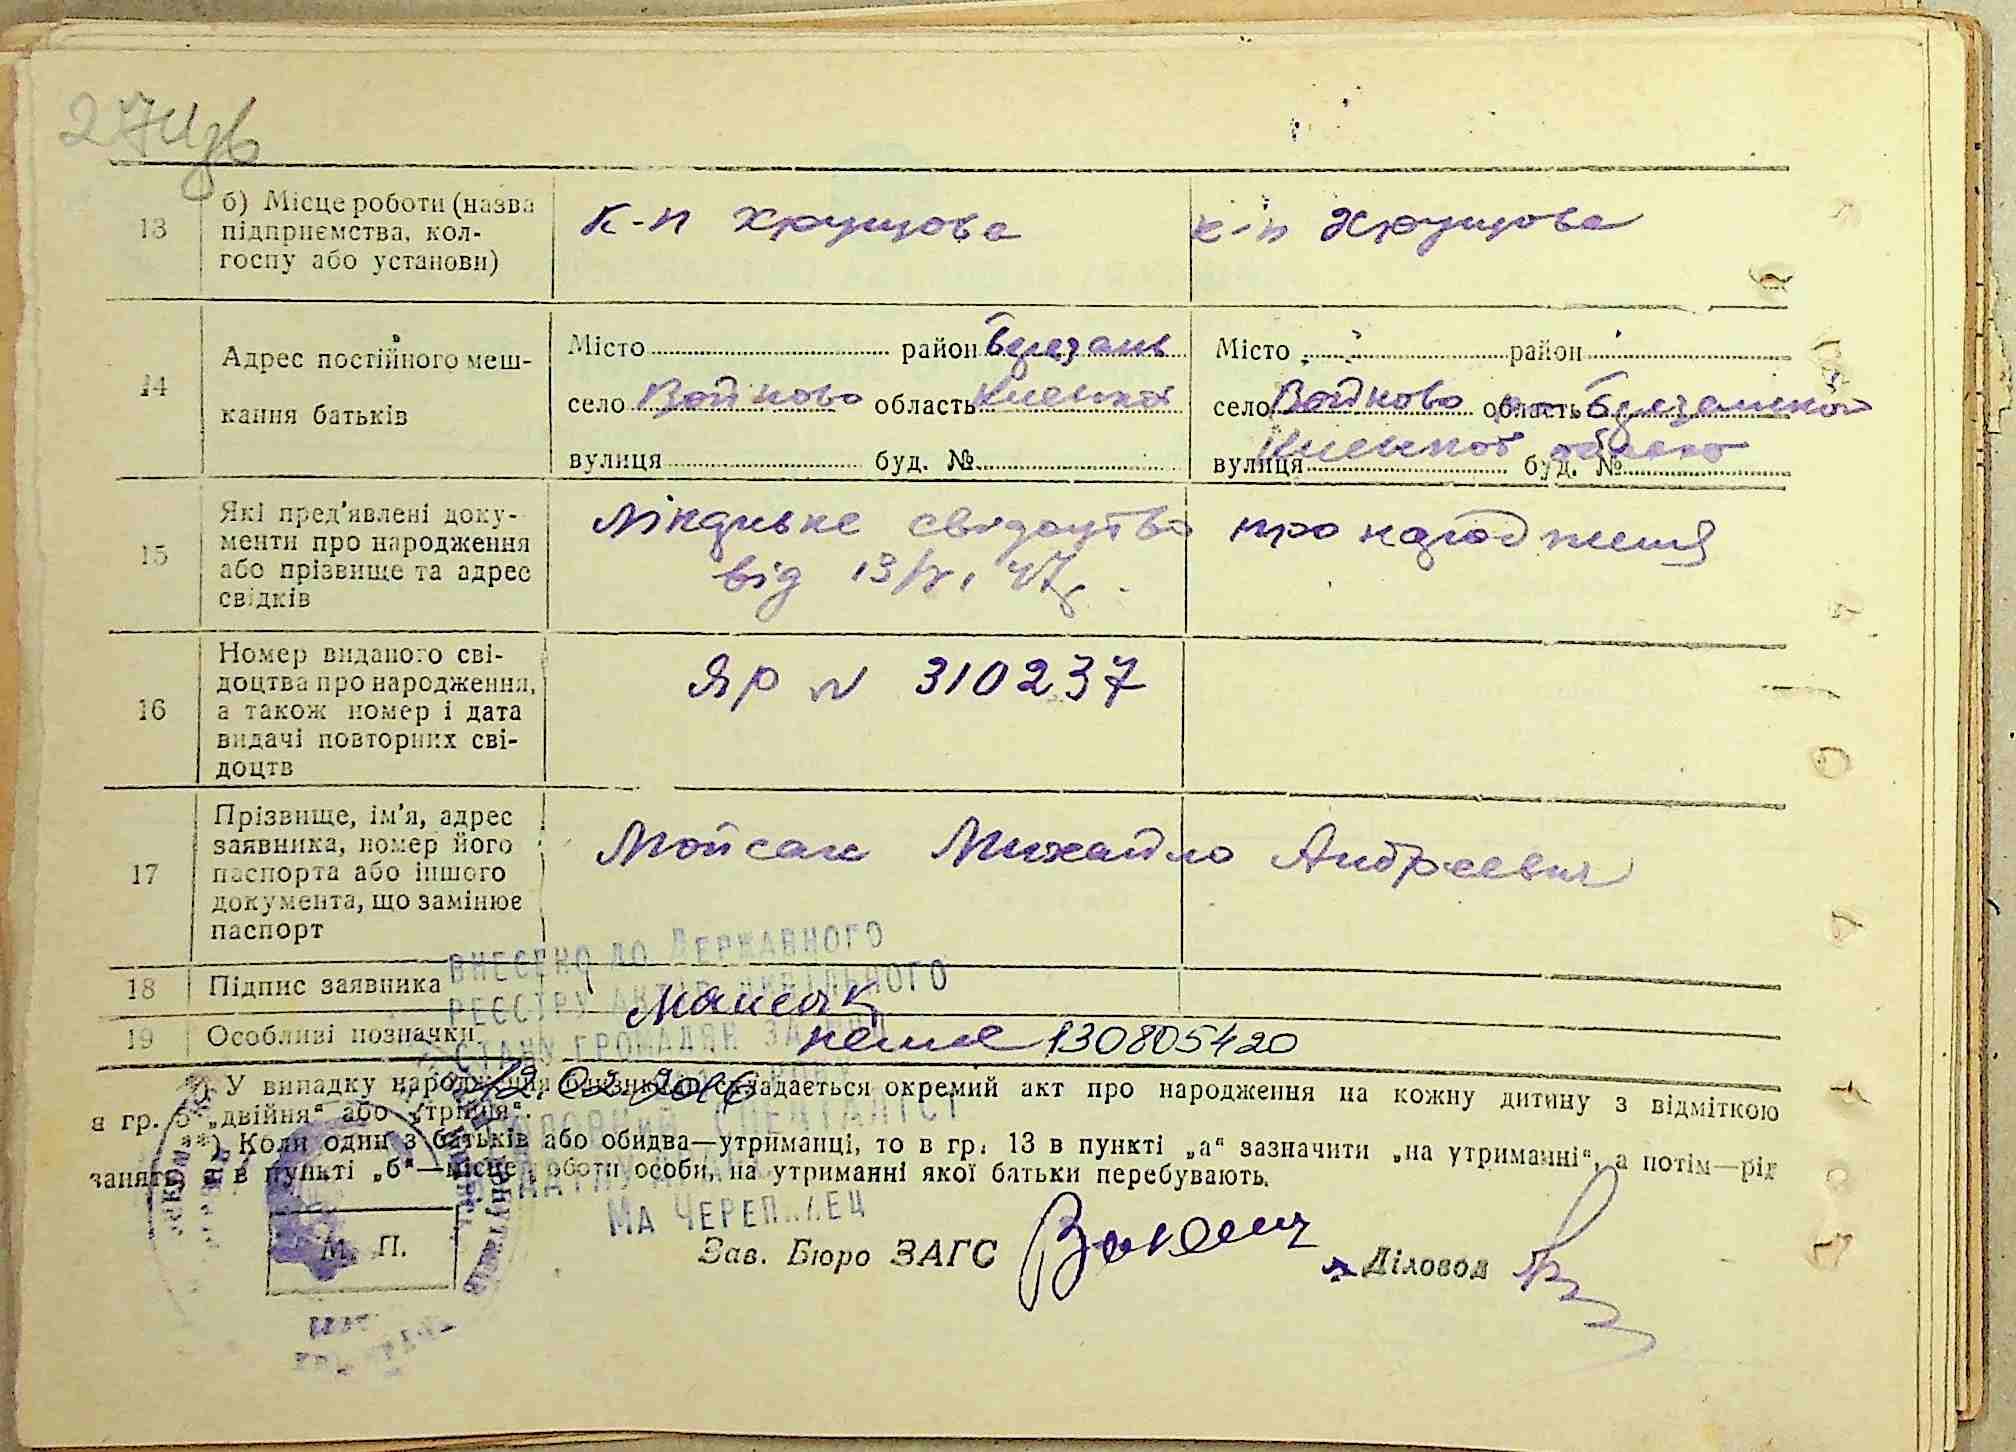 13 б) Місце роботи (назва підприємства, кол-
госпу або установи)
к-п Хрущова
к-п Хрущова
14 Адрес постійного меш-
кання батьків
Місто район Березань
село Войково область Киевской
вулиця буд. №
Місто район
село Войково область Березанской
Киевской
вулиця буд. №
15 Які пред'явлені доку-
менти про народження
або прізвище та адрес
свідків
свідоцтво про народження
від 13/VI 47р.
16 Номер виданого сві-
доцтва про народження,
а також номер і дата
видачі повторних сві-
доцтв
ЯР № 310237
17 Прізвище, ім'я, адрес
заявника, номер його
паспорта або іншого
документа, що замінює
паспорт
Мойсак Михайло Андреевич
18 Підпис заявника
Мойсак
19 Особливі позначки
немає 130805420
ВНЕСЕНО ДО ДЕРЖАВНОГО
РЕЄСТРУ АКТІВ ЦИВІЛЬНОГО
СТАНУ ГРОМАДЯН ЗА
12.02.2016
*) У випадку народження близнюків складається окремий акт про народження на кожну дитину з відміткою
в гр. 5 „двійня“ або „трійня“.
**) Коли один з батьків або обидва—утриманці, то в гр. 13 в пункті „а“ зазначити „на утриманні“, а потім—рід
занять, а в пункті „б“—місце роботи особи, на утриманні якої батьки перебувають.
СПЕЦІАЛІСТ
М. П.
Зав. Бюро ЗАГС
Діловод